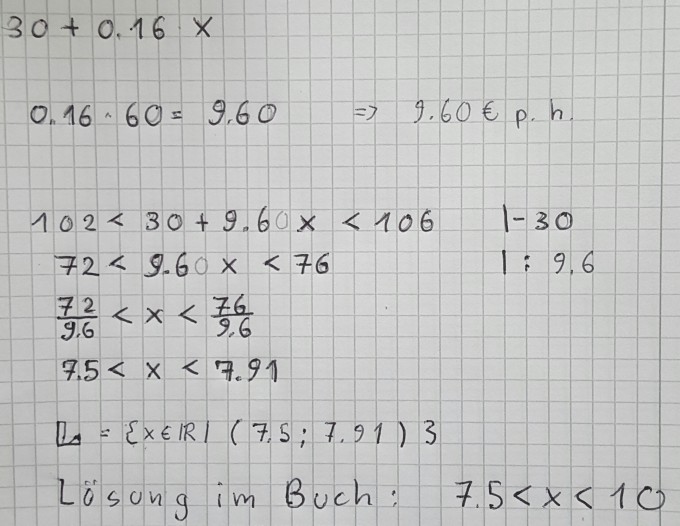 30 + 0.16 x
0.16 · 60 = 9.60 => 9.60 € p. h.
102 < 30 + 9.60x < 106 |- 30
72 < 9.60x < 76 | : 9,6
72/9.6 < x < 76/9.6
7.5 < x < 7.91
L = {x ∈ ℝ | (7.5 ; 7.91) }
Lösung im Buch: 7.5 < x < 10